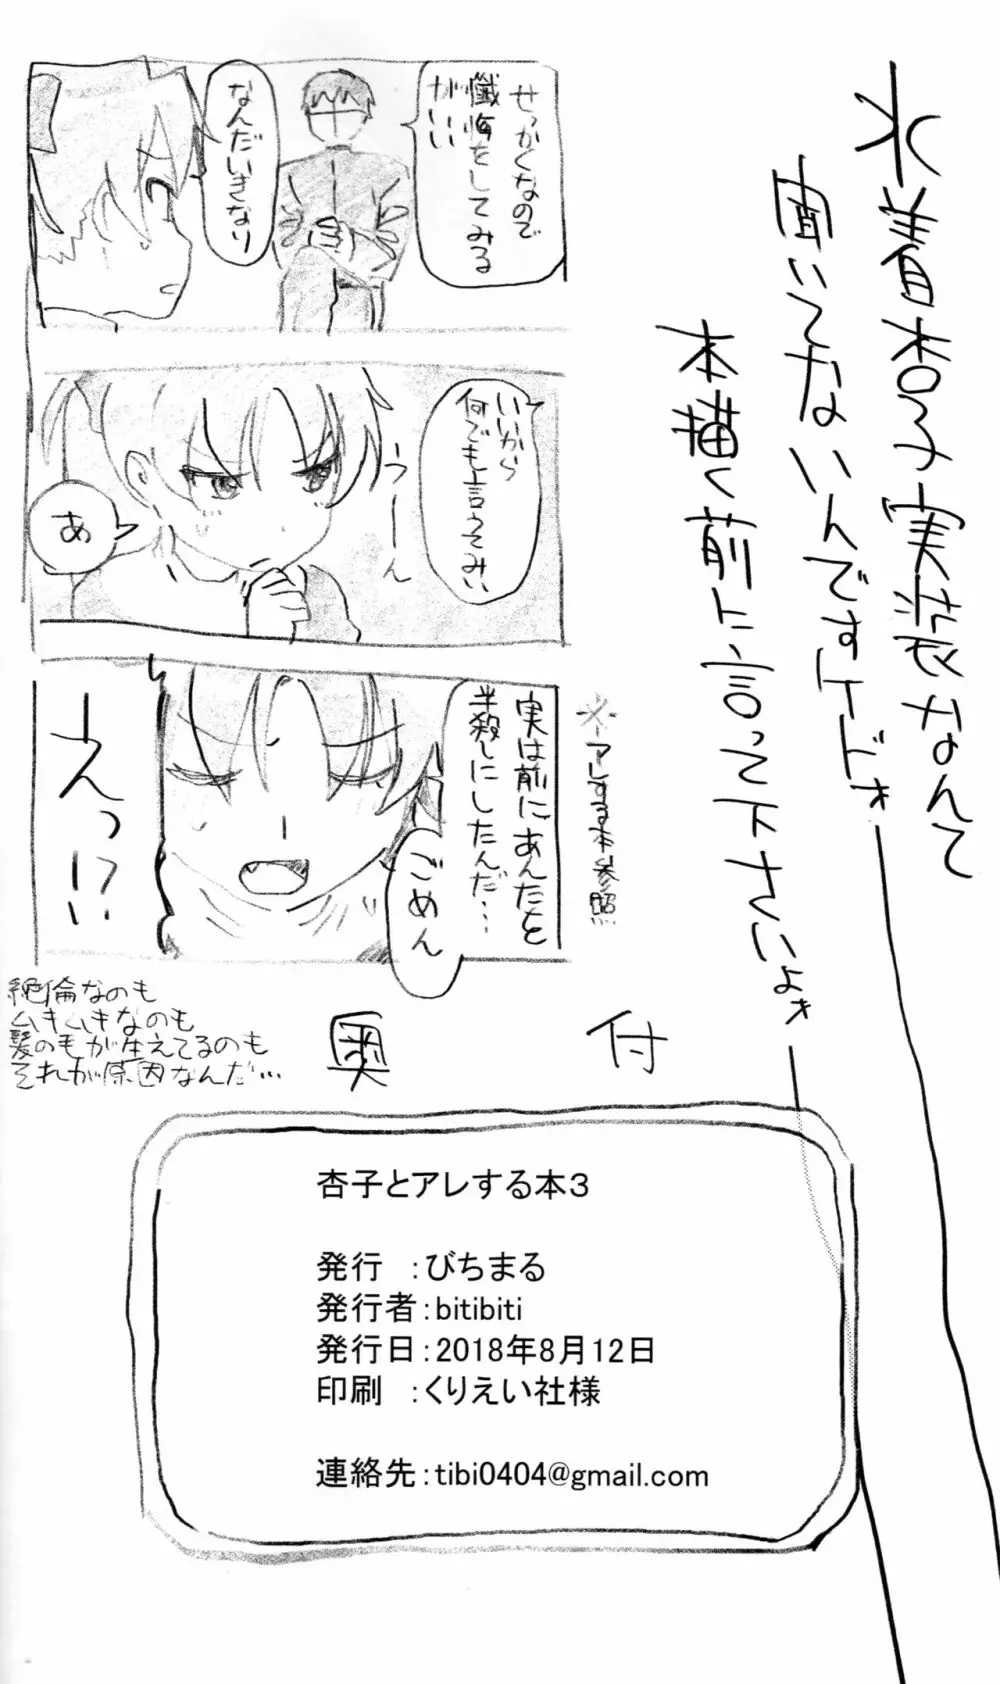 水着杏子実装なんて
聞いてないんですけドォーーー
本描く前に言って下さいよォー
せっかくなので
懺悔をしてみる
がいい
なんだいきなり
いいから
何でも言ってみい
うーーん
あ
※アレする本参照
実は前にあんたを
半殺しにしたんだ…
ごめん
えっ!?
絶倫なのも
ムキムキなのも
髪の毛が生えてるのも
それが原因なんだ…
奥付
杏子とアレする本3
発行 :びちまる
発行者:bitibiti
発行日:2018年8月12日
印刷 :くりえい社様
連絡先:tibi0404@gmail.com